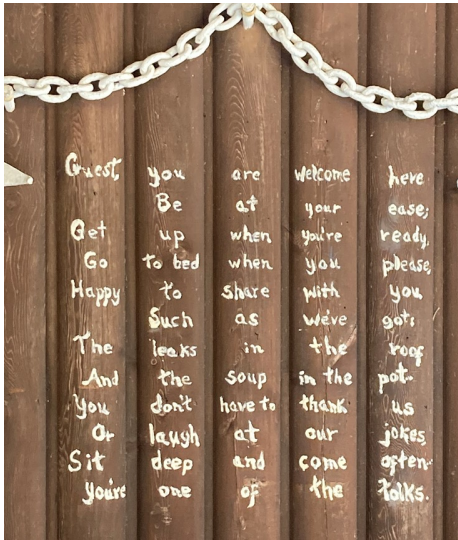 Guest, you are welcome here
Be at your ease;
Get up when you're ready,
Go to bed when you please,
Happy to share with you
Such as we've got:
The leaks in the roof
And the soup in the pot.
You don't have to thank us
Or laugh at our jokes
Sit deep and come often
You're one of the folks.